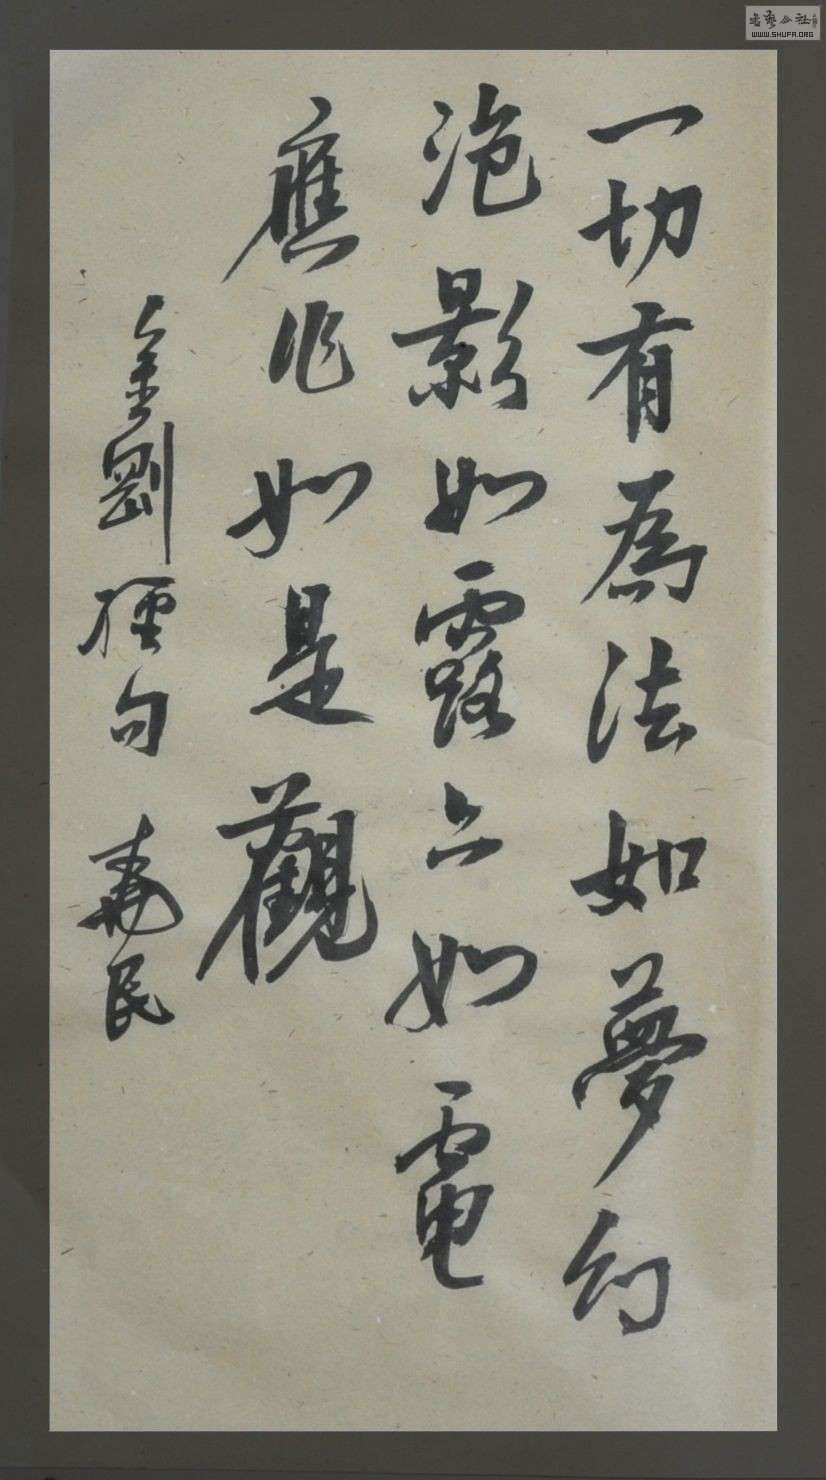 一切有為法如夢幻
泡影如露亦如電
應作如是觀
金剛經句 壽民
書藝公社
WWW.SHUFA.ORG